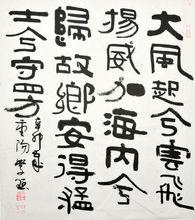 大風起兮雲飛
揚威加海內兮
歸故鄉安得猛
士兮守四方
辛卯
東陽